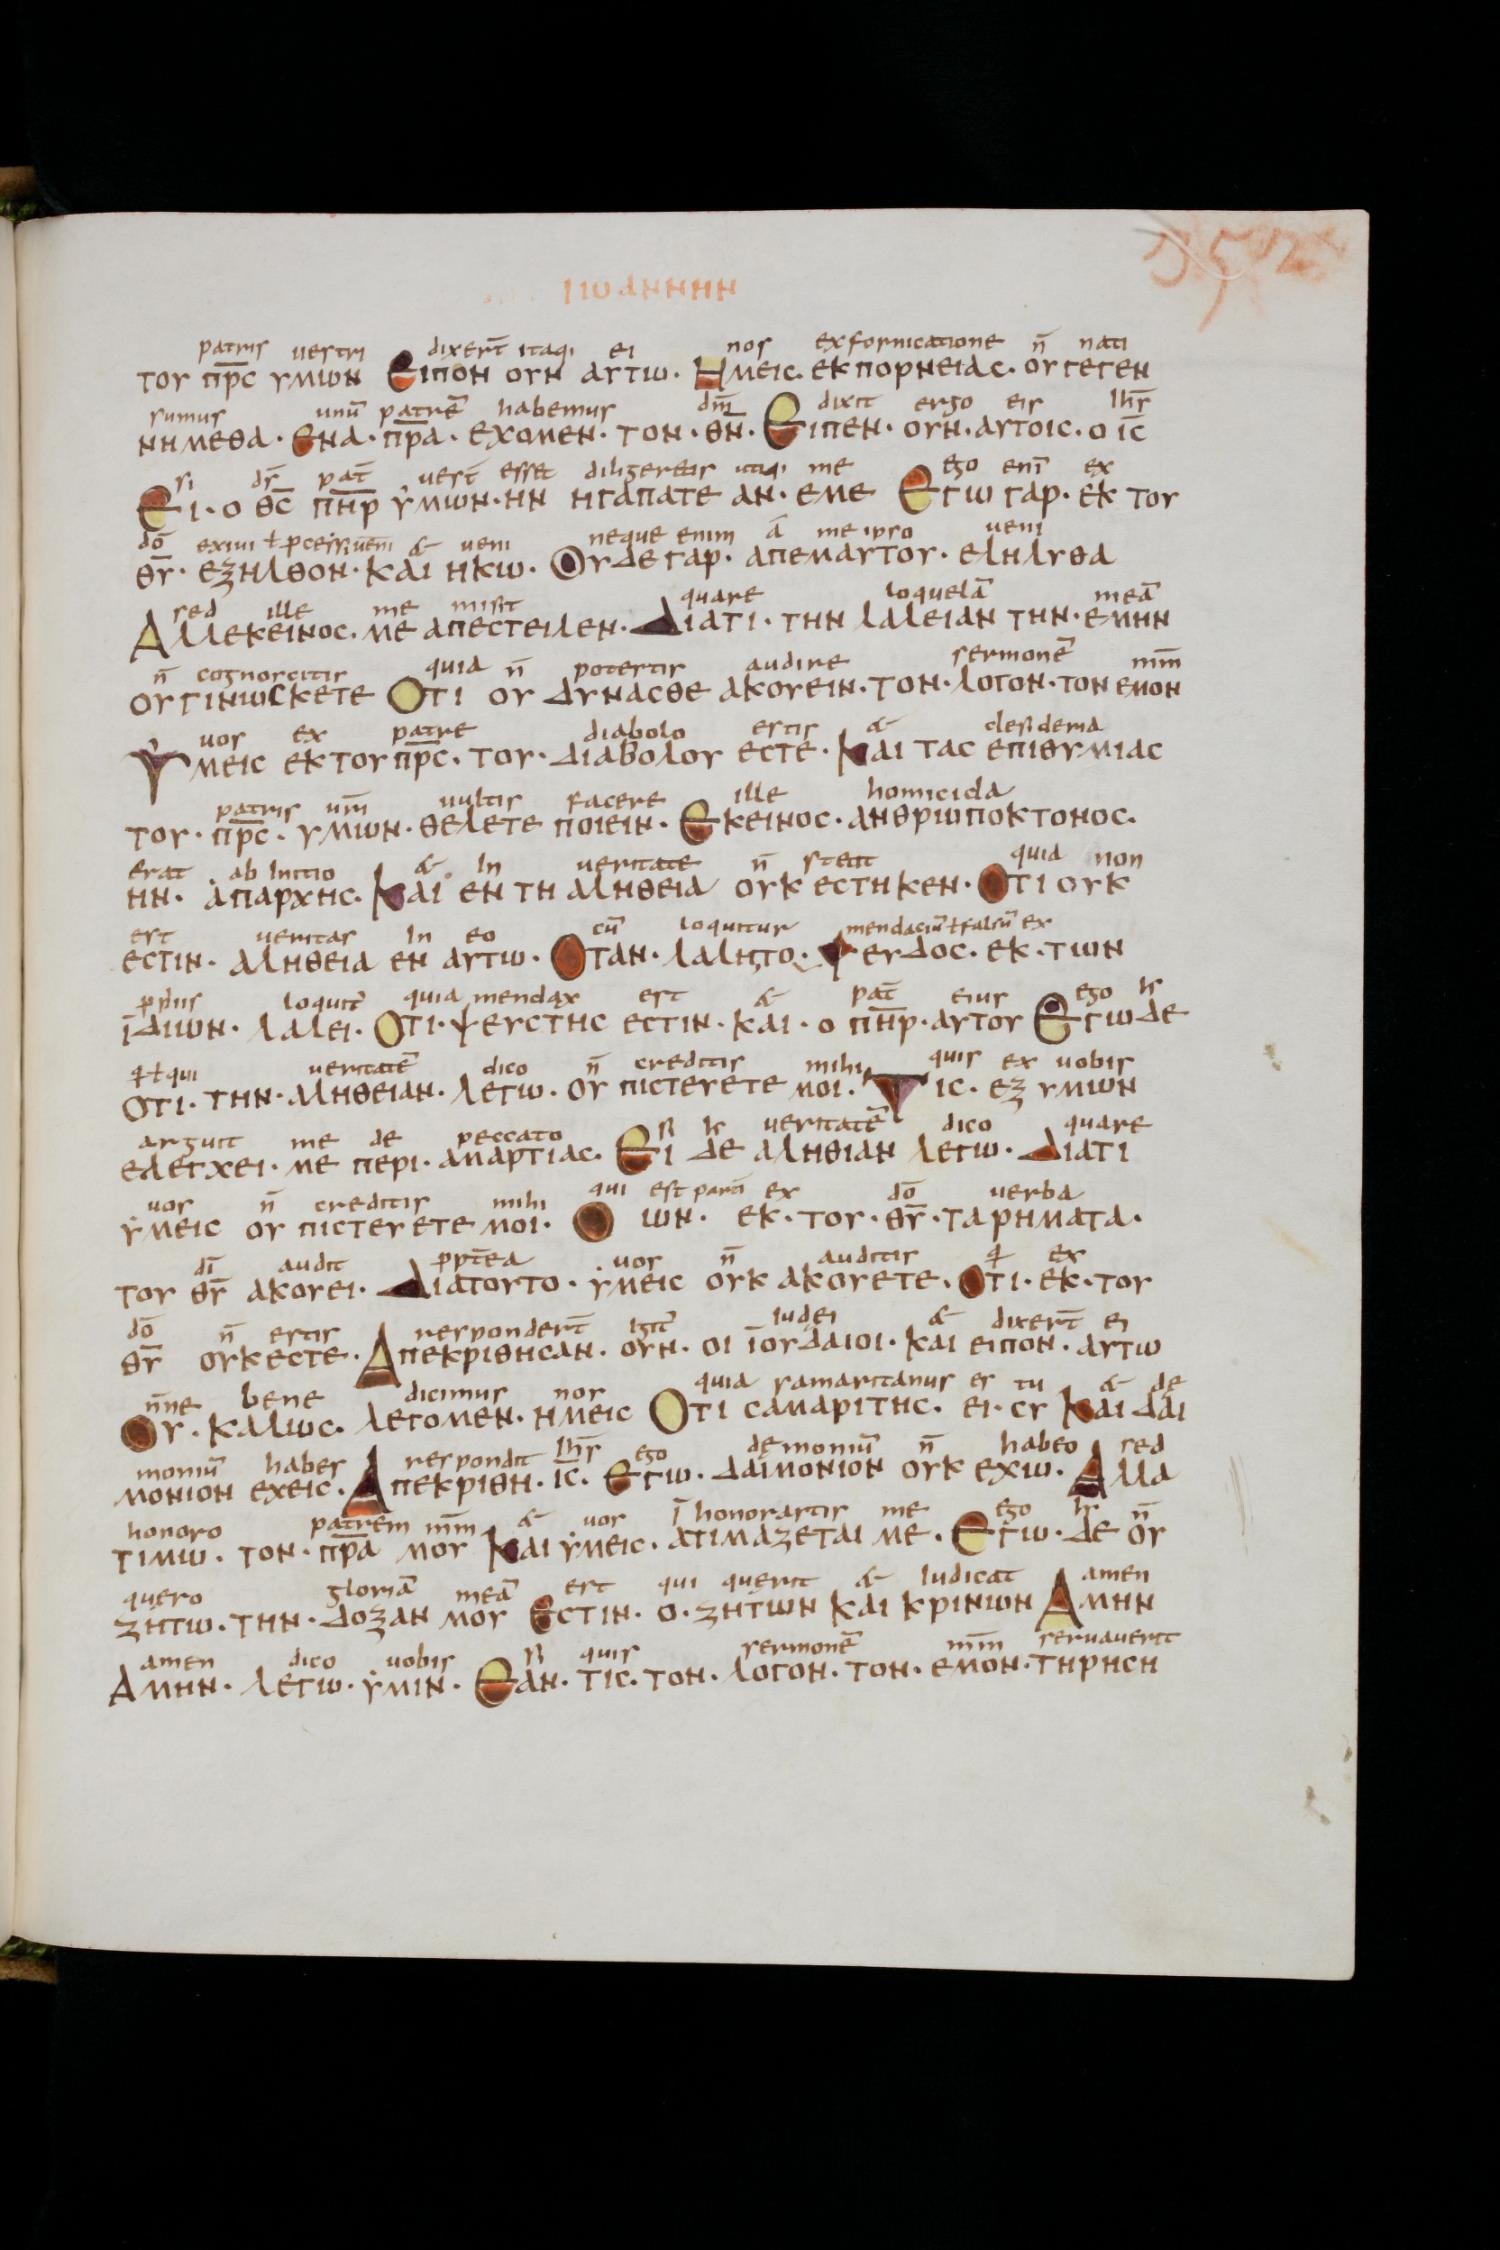 ΙΩΑΝΝΗΝ
352
patris uestri dixert̄ itaq; ei nos ex fornicatione n̄ nati
ΤΟΥ Π̅Ρ̅Σ̅ ΥΜΩΝ ΕΙΠΟΝ ΟΥΝ ΑΥΤΩ· ΗΜΕΙΣ· ΕΚ ΠΟΡΝΕΙΑΣ· ΟΥ ΓΕΓΕΝ
sumus unū patrē habemus dm̄ dixit ergo eis ihs̄
ΝΗΜΕΘΑ· ΕΝΑ· Π̅Ρ̅Α̅· ΕΧΟΜΕΝ· ΤΟΝ· Θ̅Ν̅· ΕΙΠΕΝ· ΟΥΝ· ΑΥΤΟΙΣ· Ο Ι̅Σ̅
si ds̄ pat̄ uest̄ esset diligeretis itaq; me ego eni̅ ex
ΕΙ· Ο Θ̅Σ̅ Π̅Η̅Ρ̅ ΥΜΩΝ· ΗΝ ΗΓΑΠΑΤΕ ΑΝ· ΕΜΕ ΕΓΩ ΓΑΡ· ΕΚ ΤΟΥ
dō exiui ɫ pcessi uenī & ueni neque enim ā me ipso ueni
Θ̅Υ̅· ΕΞΗΛΘΟΝ· ΚΑΙ ΗΚΩ· ΟΥΔΕ ΓΑΡ· ΑΠΕΜΑΥΤΟΥ· ΕΛΗΛΥΘΑ
sed ille me misit quare loquelā meā
ΑΛΛΕΚΕΙΝΟΣ· ΜΕ ΑΠΕΣΤΕΙΛΕΝ· ΔΙΑΤΙ· ΤΗΝ ΛΑΛΕΙΑΝ ΤΗΝ· ΕΜΗΝ
n̄ cognoscitis quia n̄ potestis audire sermonē mm̄
ΟΥ ΓΙΝΩΣΚΕΤΕ ΟΤΙ ΟΥ ΔΥΝΑΣΘΕ ΑΚΟΥΕΙΝ· ΤΟΝ· ΛΟΓΟΝ· ΤΟΝ ΕΜΟΝ
uos ex patre diabolo estis & desideria
ΥΜΕΙΣ ΕΚ ΤΟΥ Π̅Ρ̅Σ̅· ΤΟΥ· ΔΙΑΒΟΛΟΥ ΕΣΤΕ· ΚΑΙ ΤΑΣ ΕΠΙΘΥΜΙΑΣ
patris um̄ uultis facere ille homicida
ΤΟΥ· Π̅Ρ̅Σ̅· ΥΜΩΝ· ΘΕΛΕΤΕ ΠΟΙΕΙΝ· ΕΚΕΙΝΟΣ· ΑΝΘΡΩΠΟΚΤΟΝΟΣ·
erat ab initio & in ueritate n̄ stetit quia non
ΗΝ· ΑΠΑΡΧΗΣ· ΚΑΙ ΕΝ ΤΗ ΑΛΗΘΕΙΑ ΟΥΚ ΕΣΤΗΚΕΝ· ΟΤΙ ΟΥΚ
est ueritas in eo cū loquitur mendaciū ɫ falsū ex
ΕΣΤΙΝ· ΑΛΗΘΕΙΑ ΕΝ ΑΥΤΩ· ΟΤΑΝ· ΛΑΛΗ ΤΟ· ΨΕΥΔΟΣ· ΕΚ· ΤΩΝ
pp̄riis loquit̄ quia mendax est & pat̄ eius ego hr̄
ΙΔΙΩΝ· ΛΑΛΕΙ· ΟΤΙ· ΨΕΥΣΤΗΣ ΕΣΤΙΝ· ΚΑΙ· Ο Π̅Η̅Ρ̅· ΑΥΤΟΥ ΕΓΩ ΔΕ
q ɫ qui ueritatē dico n̄ creditis mihi quis ex uobis
ΟΤΙ· ΤΗΝ· ΑΛΗΘΕΙΑΝ· ΛΕΓΩ· ΟΥ ΠΙΣΤΕΥΕΤΕ ΜΟΙ· ΤΙΣ· ΕΞ ΥΜΩΝ
arguit me de peccato si hr̄ ueritatē dico quare
ΕΛΕΓΧΕΙ· ΜΕ ΠΕΡΙ· ΑΜΑΡΤΙΑΣ· ΕΙ ΔΕ ΑΛΗΘΙΑΝ ΛΕΓΩ· ΔΙΑΤΙ
uos n̄ creditis mihi qui est ex dō uerba
ΥΜΕΙΣ ΟΥ ΠΙΣΤΕΥΕΤΕ ΜΟΙ· Ο ΩΝ· ΕΚ· ΤΟΥ· Θ̅Υ̅· ΤΑ ΡΗΜΑΤΑ·
dī audit pp̄tea uos n̄ auditis q ex
ΤΟΥ Θ̅Υ̅ ΑΚΟΥΕΙ· ΔΙΑΤΟΥΤΟ· ΥΜΕΙΣ ΟΥΚ ΑΚΟΥΕΤΕ· ΟΤΙ· ΕΚ· ΤΟΥ
dō n̄ estis respondert̄ igit̄ iudei & dixert̄ ei
Θ̅Υ̅ ΟΥΚ ΕΣΤΕ· ΑΠΕΚΡΙΘΗΣΑΝ· ΟΥΝ· ΟΙ ΙΟΥΔΑΙΟΙ· ΚΑΙ ΕΙΠΟΝ· ΑΥΤΩ
n̄ne bene dicimus nos quia samaritanus es tu & de
ΟΥ· ΚΑΛΩΣ· ΛΕΓΟΜΕΝ· ΗΜΕΙΣ ΟΤΙ ΣΑΜΑΡΙΤΗΣ· ΕΙ· ΣΥ ΚΑΙ ΔΑΙ
moniū habes respondit ihs̄ ego demoniū n̄ habeo sed
ΜΟΝΙΟΝ ΕΧΕΙΣ· ΑΠΕΚΡΙΘΗ· Ι̅Σ̅· ΕΓΩ· ΔΑΙΜΟΝΙΟΝ ΟΥΚ ΕΧΩ· ΑΛΛΑ
honoro patrem mm̄ & uos ī honorastis me ego hr̄ n̄
ΤΙΜΩ· ΤΟΝ· Π̅Ρ̅Α̅ ΜΟΥ ΚΑΙ ΥΜΕΙΣ· ΑΤΙΜΑΖΕΤΑΙ ΜΕ· ΕΓΩ· ΔΕ ΟΥ
quero gloriā meā est qui querit & iudicat amen
ΖΗΤΩ· ΤΗΝ· ΔΟΞΑΝ ΜΟΥ ΕΣΤΙΝ· Ο· ΖΗΤΩΝ ΚΑΙ ΚΡΙΝΩΝ ΑΜΗΝ
amen dico uobis si quis sermonē mm̄ seruauerit
ΑΜΗΝ· ΛΕΓΩ· ΥΜΙΝ· ΕΑΝ· ΤΙΣ· ΤΟΝ· ΛΟΓΟΝ· ΤΟΝ· ΕΜΟΝ· ΤΗΡΗΣΗ